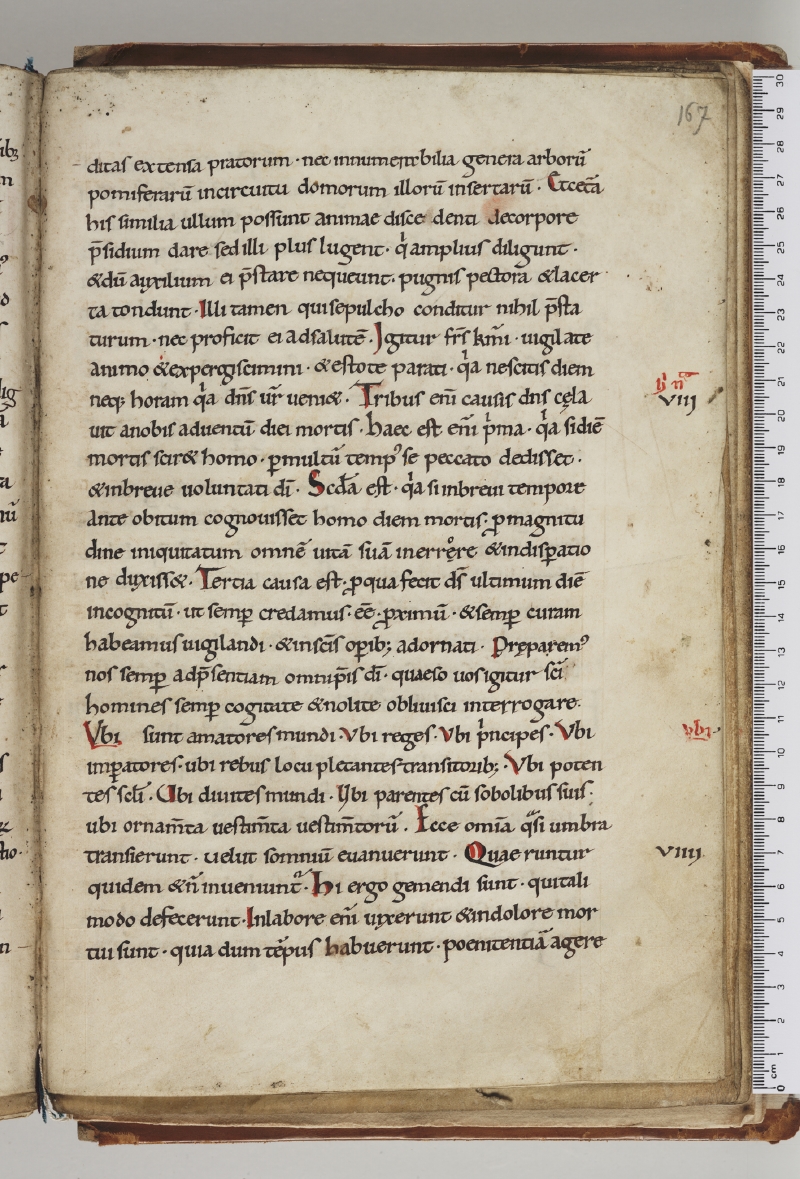 167
ditas extensa pratorum · nec innumerabilia genera arborū
pomiferarū incircuitu domorum illorū insertarū · Etcetã
his similia ullum possunt animae disce denti decorpore
p̄sidium dare sed illi plus lugent · qͥ amplius diligunt ·
&dū auxilium ei p̄stare nequeunt · pugnis pectora &lacer
ta tondunt · Illi tamen qui sepulcho conditur nihil p̄sta
turum · nec proficit ei adsalutē · Igitur frs̄ km̄i · uigilate
animo &expergiscimini · &estote parati · qͥa nescitis diem
neq; horam qͥa dn̄s ur̄ ueni& · Tribus eni̅ causis dn̄s cęla
uit anobis aduentū diei mortis · haec est eni̅ pͥma · qͥa sidiē
mortis scir& homo · ꝑmultū tempꝰ se peccato dedisset ·
&inbreue uoluntati dī · Scd̄a est · qͥa si inbreui tempore
ante obitum cognouisset homo diem mortis · ꝓmagnitu
dine iniquitatum omnē uitā suā in errore &indisꝑatio
ne duxiss& · Tertia causa est · ꝓqua fecit ds̄ ultimum diē
incognitū · ut semꝑ credamus · eē · ꝓximū · &semꝑ curam
habeamus uigilandi · &inscīs oꝑib; adornati · Pręparemꝰ
nos semꝑ adp̄sentiam omnip̄is dī · quaeso uos igitur scī
homines semꝑ cogitate &nolite obliuisci interrogare ·
Vbi sunt amatores mundi · Vbi reges · Vbi pͥncipes · Vbi
imꝑatores · ubi rebus locu pletantes transitorib; · Vbi poten
tes scl̄i · Ubi diuites mundi · Ubi parentes cū sobolibus suis ·
ubi ornam̄ta uestim̄ta uestim̄torū · Ecce omīa qͣsi umbra
transierunt · uelut somniū euanuerunt · Quae runtur
quidem &n̄ inueniunt᷑ · Hi ergo gemendi sunt · qui tali
modo defecerunt · Inlabore eni̅ uixerunt &indolore mor
tui sunt · quia dum tēpus habuerunt · poenitentiā agere
VIII
Vbi
VIIII